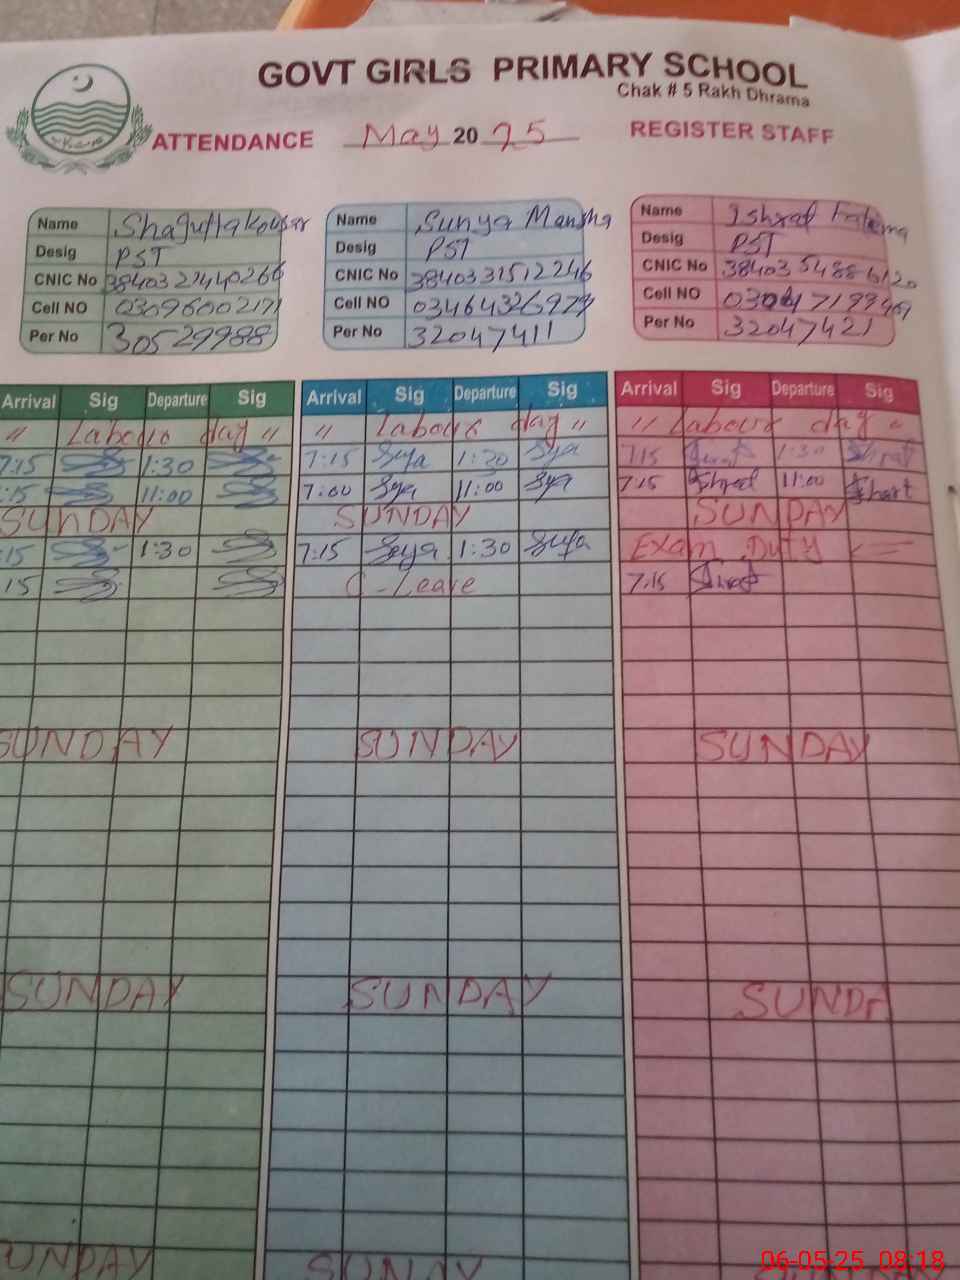 GOVT GIRLS PRIMARY SCHOOL
Chak # 5 Rakh Dhrama
ATTENDANCE May 2025 REGISTER STAFF
Name Shagufta Kousar Name Sunya Mansha Name Ishraf Fatima
Desig PST Desig PST Desig PST
CNIC No CNIC No 3840331512246 CNIC No
Cell NO 03096002171 Cell NO Cell NO
Per No 30529988 Per No 32047411 Per No 32047421
Arrival Sig Departure Sig Arrival Sig Departure Sig Arrival Sig Departure Sig
" Labour day " " Labour day " " Labour day "
7:15 1:30 7:15 Sya 1:30 Sya 7:15 1:30
:15 11:00 7:00 Sya 11:00 Sya 7:15 11:00
SUNDAY SUNDAY SUNDAY
:15 1:30 7:15 1:30 Exam Duty
15 C-Leave 7:15
SUNDAY SUNDAY SUNDAY
SUNDAY SUNDAY SUNDA
UNDAY SUNDAY
06-05-25 08:18